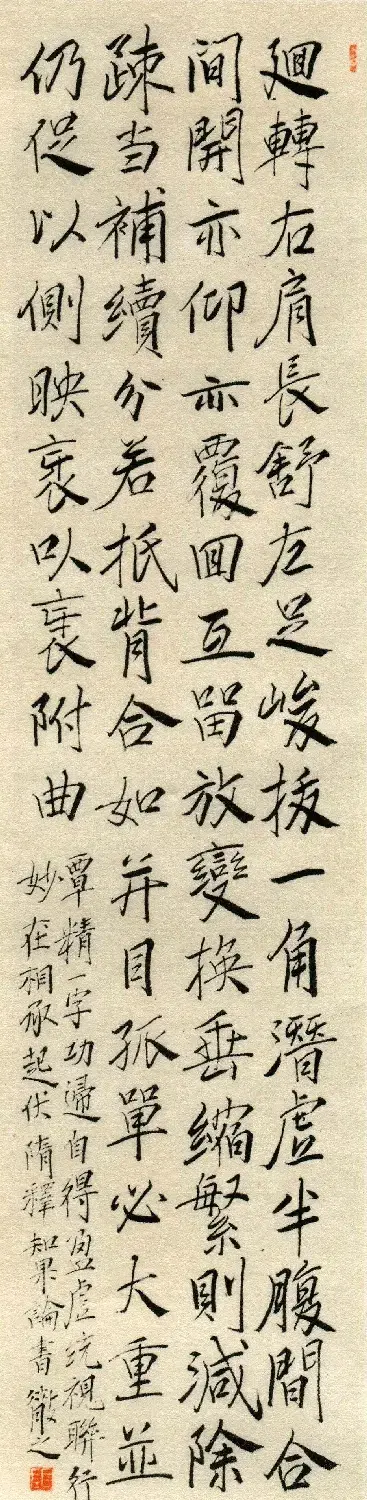 廻轉右肩長舒左足峻拔一角潛虛半腹間合
間開亦仰亦覆回互留放變換垂縮繁則減除
疎当補續分若抵背合如并目孤單必大重並
仍促以側映斜以斜附曲
覃精一字功歸自得盈虛統視聯行
妙在相承起伏隋釋智果論書徵之